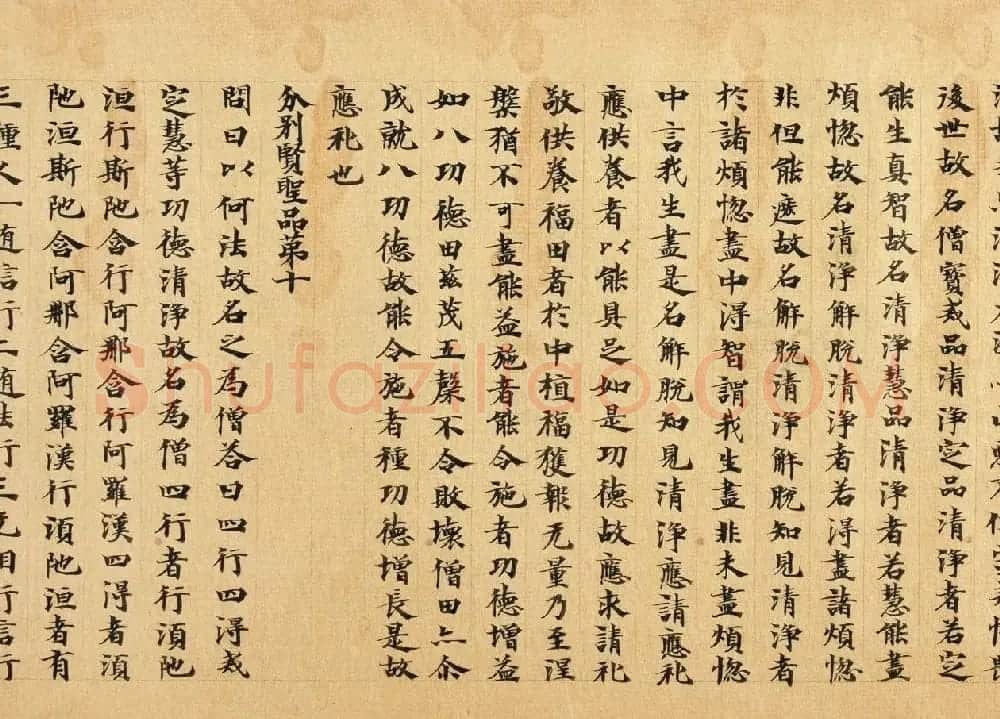 後世故名僧寶戒品清淨定品清淨者若定
能生真智故名清淨慧品清淨者若慧能盡
煩惚故名清淨解脫清淨者若得盡諸煩惚
非但能遮故名解脫清淨解脫知見清淨者
於諸煩惚盡中得智謂我生盡非未盡煩惚
中言我生盡是名解脫知見清淨應請應礼
應供養者以能具足如是功德故應求請礼
敬供養福田者於中植福獲報无量乃至涅
槃猶不可盡能益施者能令施者功德增益
如八功德田茲茂五穀不令敗壞僧田亦尒
成就八功德故能令施者種功德增長是故
應礼也
分別賢聖品第十
問曰以何法故名之為僧答曰四行四得戒
定慧等功德清淨故名為僧四行者行須陁
洹行斯陁含行阿那含行阿羅漢四得者須
陁洹斯陁含阿那含阿羅漢行須陁洹者有
三種人一随信行二随法行三无相行信行
Shufaziliao.com